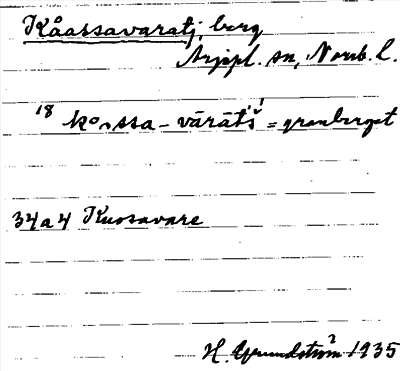 Kåassavaratj, berg
Arjepl. sn, Norrb. l.
18 ko̭ssa-vārāt́š́ = granberget
34a4 Kuosavare
H. Grundström 1935